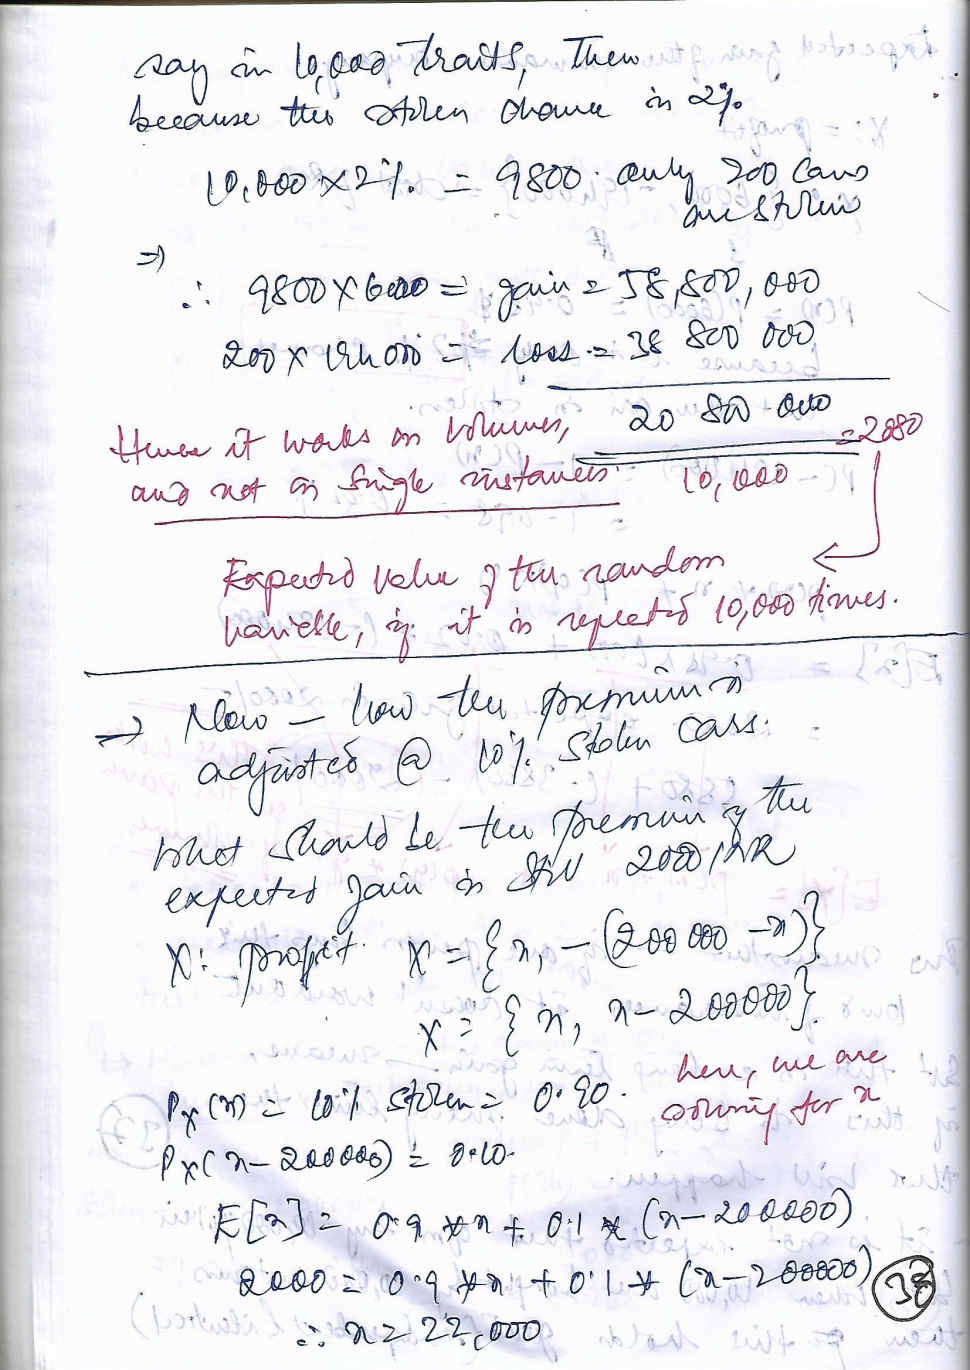 say in 10,000 traits, then
because the stolen chance is 2%
10,000 × 2% = 9800. only 200 cars
are stolen
⇒
∴ 9800 × 6000 = gain = 58,800,000
200 × 194000 = loss = 38 800 000
20 800 000
Hence it works on volumes,
= 2080
and not on single instances.
10,000
Expected value of the random
variable, if it is repeated 10,000 times.
→ Now – how the premium is
adjusted @ 10% stolen cars.
What should be the premium if the
expected gain is still 2000 INR
X: profit. X = {x, -(200 000 - x)}
X = {x, x - 200000}
here, we are
solving for x
Px(x) = 10% stolen = 0.90.
Px(x - 200000) = 0.10.
E[x] = 0.9 * x + 0.1 * (x - 200000)
2000 = 0.9 * x + 0.1 * (x - 200000)
∴ x = 22,000
38